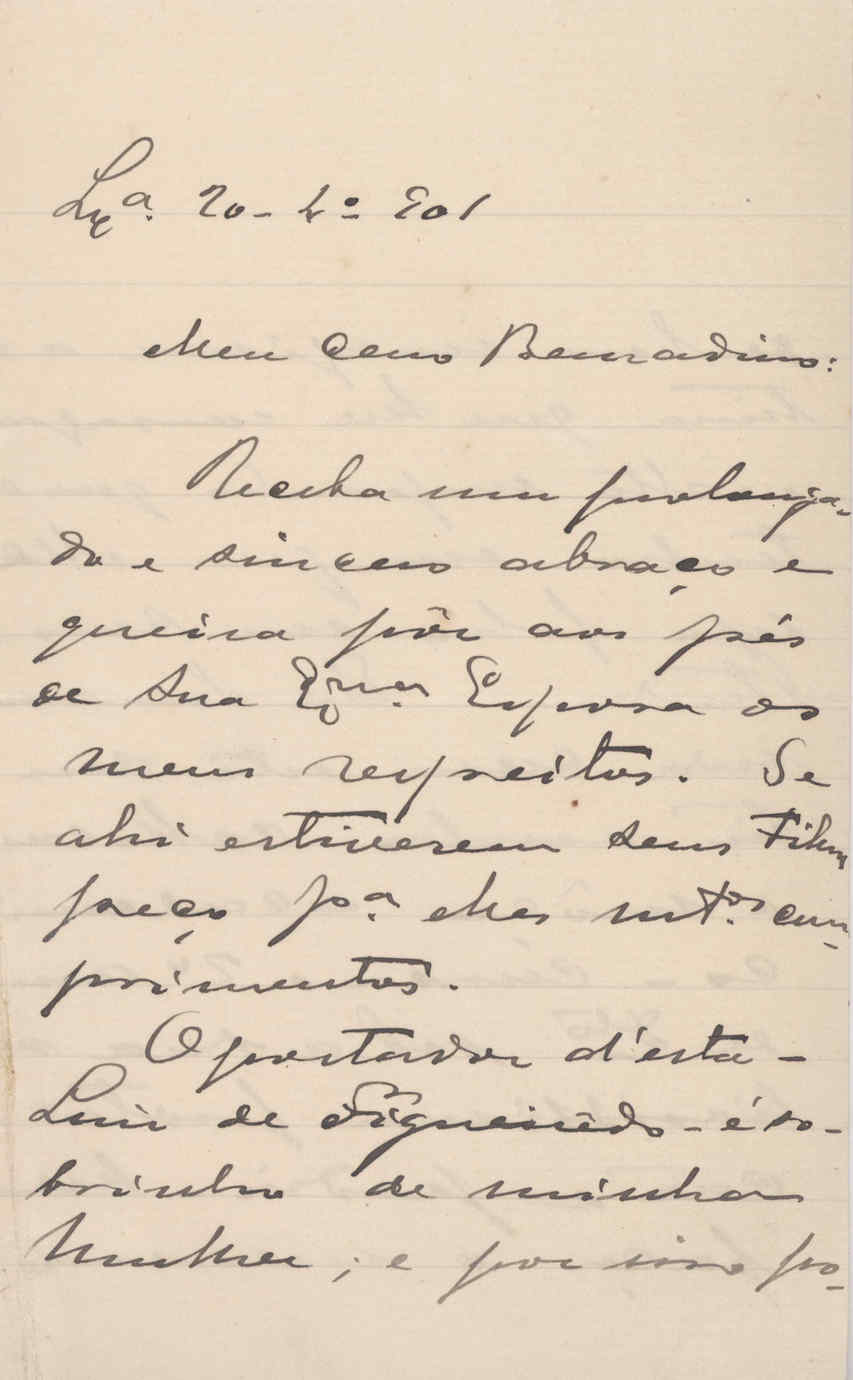 Lxª. 20 - 4º 901
Meu Caro Bernardino:
Receba um prolonga-
do e sincero abraço e
queira pôr aos pés
de Sua Exmª. Esposa os
meus respeitos. Se
ahi estiverem seus Filhos
peço pª. elles mtos. cum-
primentos.
O portador d'esta -
Luiz de Figueirêdo - é so-
brinho de minha
Mulher; e por isso po-